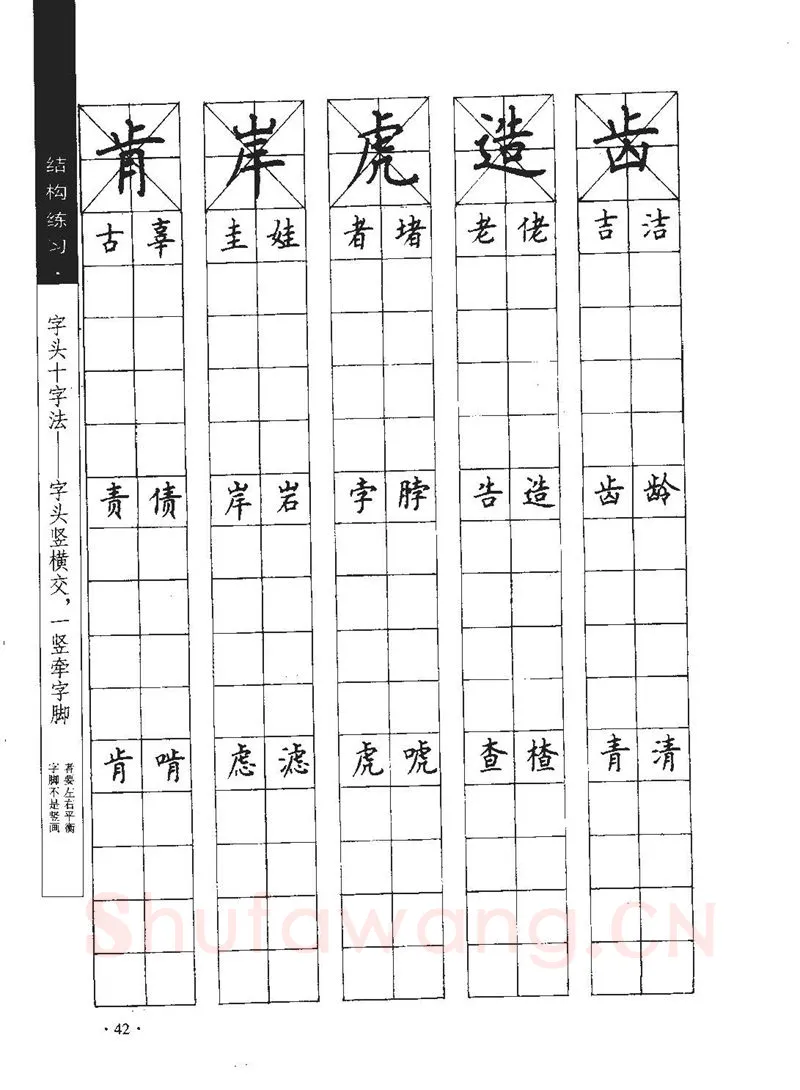 结构练习·
字头十字法——字头竖横交，一竖牵字脚
字脚不是竖画
者要左右平衡
肯 岸 虎 造 齿
古 辜 圭 娃 者 堵 老 佬 吉 洁
责 债 岸 岩 孛 脖 告 造 齿 龄
肯 啃 虑 滤 虎 唬 查 楂 青 清
Shufawang.CN
·42·